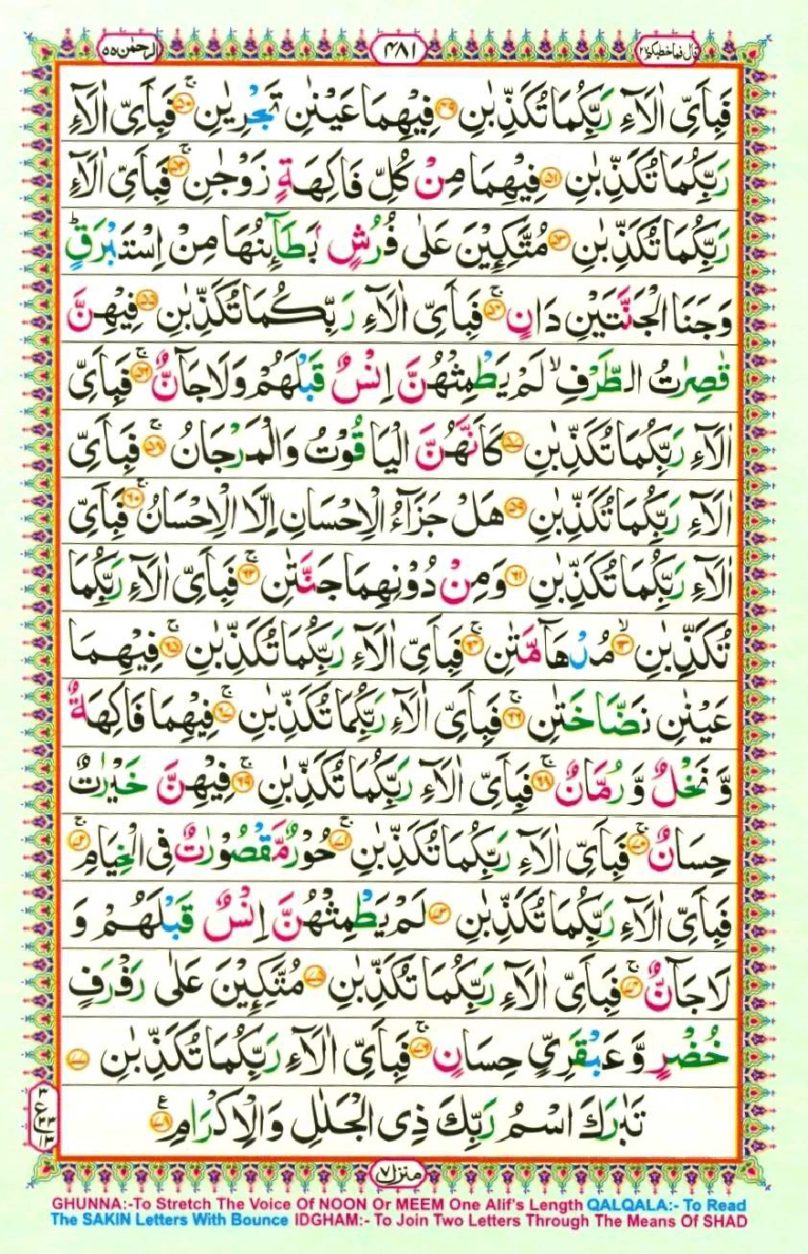 قال فما خطبكم ٢٧ ٤٨١ الرحمٰن ٥٥
فَبِاَىِّ اٰلَآءِ رَبِّكُمَا تُكَذِّبٰنِ ﴿٤٩﴾ فِيْهِمَا عَيْنٰنِ تَجْرِيٰنِ ﴿٥٠﴾ۚ فَبِاَىِّ اٰلَآءِ
رَبِّكُمَا تُكَذِّبٰنِ ﴿٥١﴾ فِيْهِمَا مِنْ كُلِّ فَاكِهَةٍ زَوْجٰنِ ﴿٥٢﴾ۚ فَبِاَىِّ اٰلَآءِ
رَبِّكُمَا تُكَذِّبٰنِ ﴿٥٣﴾ مُتَّكِـِٕيْنَ عَلٰى فُرُشٍۭ بَطَآئِنُهَا مِنْ اِسْتَبْرَقٍؕ
وَجَنَا الْجَنَّتَيْنِ دَانٍ ﴿٥٤﴾ۚ فَبِاَىِّ اٰلَآءِ رَبِّكُمَا تُكَذِّبٰنِ ﴿٥٥﴾ فِيْهِنَّ
قٰصِرٰتُ الطَّرْفِۙ لَمْ يَطْمِثْهُنَّ اِنْسٌ قَبْلَهُمْ وَلَا جَآنٌّ ﴿٥٦﴾ۚ فَبِاَىِّ
اٰلَآءِ رَبِّكُمَا تُكَذِّبٰنِ ﴿٥٧﴾ كَاَنَّهُنَّ الْيَاقُوْتُ وَالْمَرْجَانُ ﴿٥٨﴾ۚ فَبِاَىِّ
اٰلَآءِ رَبِّكُمَا تُكَذِّبٰنِ ﴿٥٩﴾ هَلْ جَزَآءُ الْاِحْسَانِ اِلَّا الْاِحْسَانُ ﴿٦٠﴾ۚ فَبِاَىِّ
اٰلَآءِ رَبِّكُمَا تُكَذِّبٰنِ ﴿٦١﴾ وَمِنْ دُوْنِهِمَا جَنَّتٰنِ ﴿٦٢﴾ۚ فَبِاَىِّ اٰلَآءِ رَبِّكُمَا
تُكَذِّبٰنِ ﴿٦٣﴾ۙ مُدْهَآمَّتٰنِ ﴿٦٤﴾ۚ فَبِاَىِّ اٰلَآءِ رَبِّكُمَا تُكَذِّبٰنِ ﴿٦٥﴾ۚ فِيْهِمَا
عَيْنٰنِ نَضَّاخَتٰنِ ﴿٦٦﴾ۚ فَبِاَىِّ اٰلَآءِ رَبِّكُمَا تُكَذِّبٰنِ ﴿٦٧﴾ۚ فِيْهِمَا فَاكِهَةٌ
وَّ نَخْلٌ وَّ رُمَّانٌ ﴿٦٨﴾ۚ فَبِاَىِّ اٰلَآءِ رَبِّكُمَا تُكَذِّبٰنِ ﴿٦٩﴾ۚ فِيْهِنَّ خَيْرٰتٌ
حِسَانٌ ﴿٧٠﴾ۚ فَبِاَىِّ اٰلَآءِ رَبِّكُمَا تُكَذِّبٰنِ ﴿٧١﴾ۚ حُوْرٌ مَّقْصُوْرٰتٌ فِى الْخِيَامِ ﴿٧٢﴾ۚ
فَبِاَىِّ اٰلَآءِ رَبِّكُمَا تُكَذِّبٰنِ ﴿٧٣﴾ لَمْ يَطْمِثْهُنَّ اِنْسٌ قَبْلَهُمْ وَ
لَا جَآنٌّ ﴿٧٤﴾ۚ فَبِاَىِّ اٰلَآءِ رَبِّكُمَا تُكَذِّبٰنِ ﴿٧٥﴾ۚ مُتَّكِـِٕيْنَ عَلٰى رَفْرَفٍ
خُضْرٍ وَّ عَبْقَرِىٍّ حِسَانٍ ﴿٧٦﴾ۚ فَبِاَىِّ اٰلَآءِ رَبِّكُمَا تُكَذِّبٰنِ ﴿٧٧﴾
تَبٰرَكَ اسْمُ رَبِّكَ ذِى الْجَلٰلِ وَالْاِكْرَامِ ﴿٧٨﴾
٣
ع
٣٣
١٣
منزل ٧
GHUNNA:-To Stretch The Voice Of NOON Or MEEM One Alif's Length QALQALA:- To Read
The SAKIN Letters With Bounce IDGHAM:- To Join Two Letters Through The Means Of SHAD